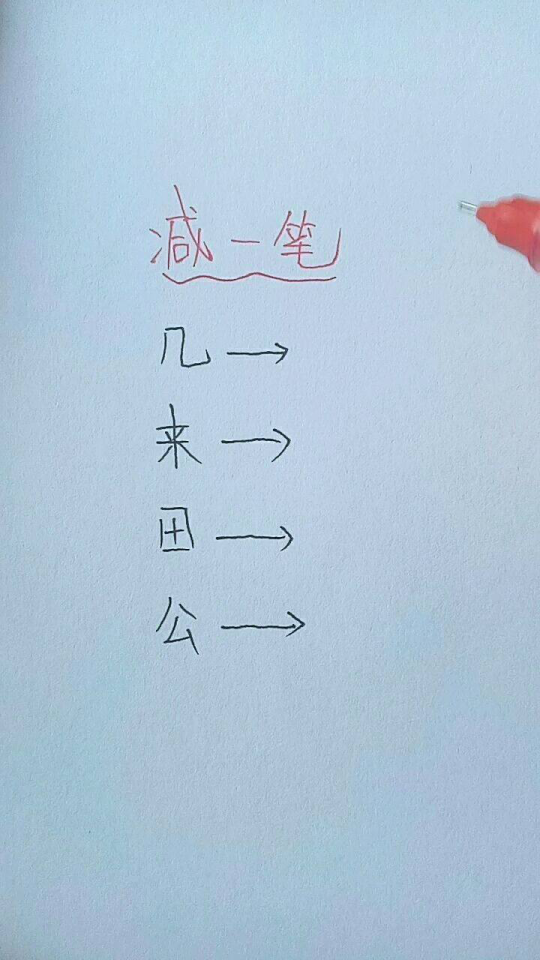 减一笔
几→
来→
田→
公→